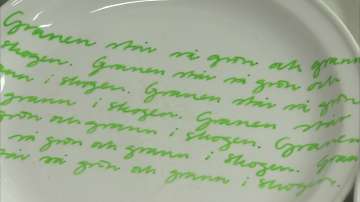 Granen står så grön och grann
skogen. Granen står så grön och
nn i skogen. Granen står så grö
grann i skogen. Granen står
grön och grann i skogen. Grane
så grön och grann i skogen. Gra
tår så grön och grann i skogen.